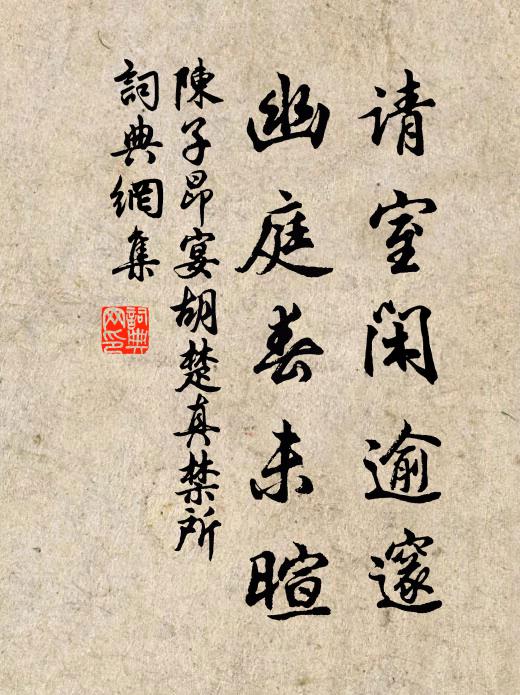 请室闲逾邃
幽庭春未暄
陳子昂宴胡楚真禁所
詞典網集
詞典
网印